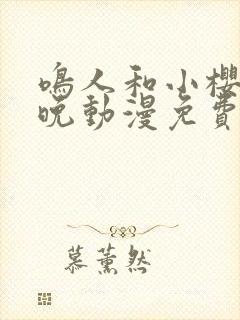 鳴人和小櫻
晚動漫免費
慕薰然